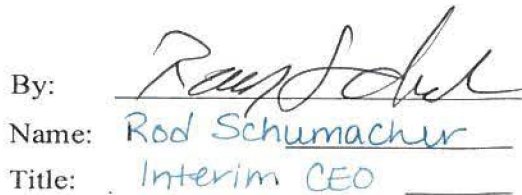 By:
Name: Rod Schumacher
Title: Interim CEO